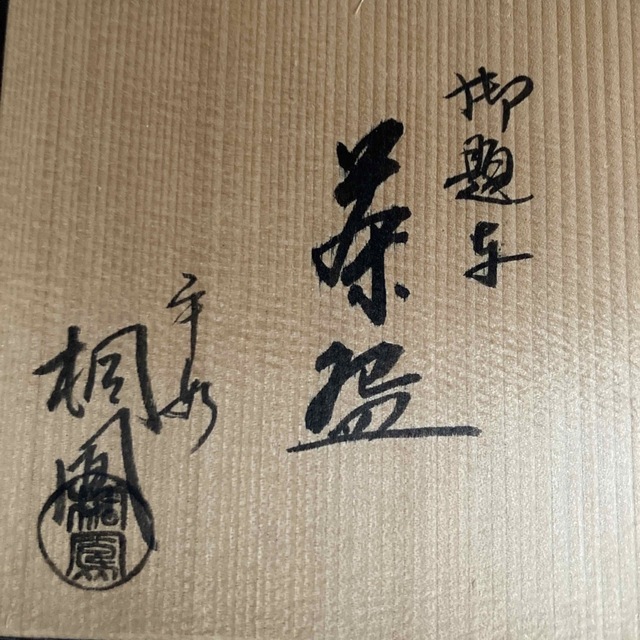 御題車
茶盌
平安
桐鳳
桐鳳